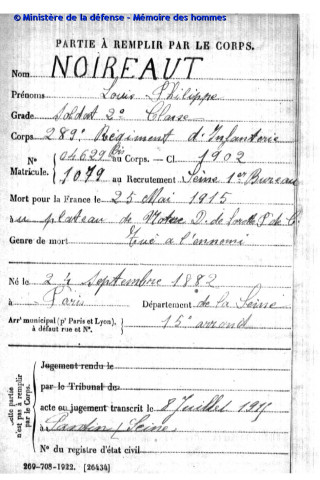 © Ministère de la défense - Mémoire des hommes
PARTIE À REMPLIR PAR LE CORPS.
Nom NOIREAUT
Prénoms Louis Philippe
Grade Soldat 2e Classe
Corps 289e Régiment d'Infanterie
N° 04629 bis au Corps. — Cl. 1902
Matricule. 1079 au Recrutement Seine 1er Bureau
Mort pour la France le 25 Mai 1915
à u plateau de Notre D. de Lorette P. de C.
Genre de mort Tué a l'ennemi
Né le 24 septembre 1882
à Paris Département de la Seine
Arrt municipal (pr Paris et Lyon), à défaut rue et N°. 15e arrond
Cette partie n'est pas à remplir par le Corps.
Jugement rendu le
par le Tribunal de
acte ou jugement transcrit le 8 Juillet 1915
à Seine
N° du registre d'état civil
269-708-1922. [26434]